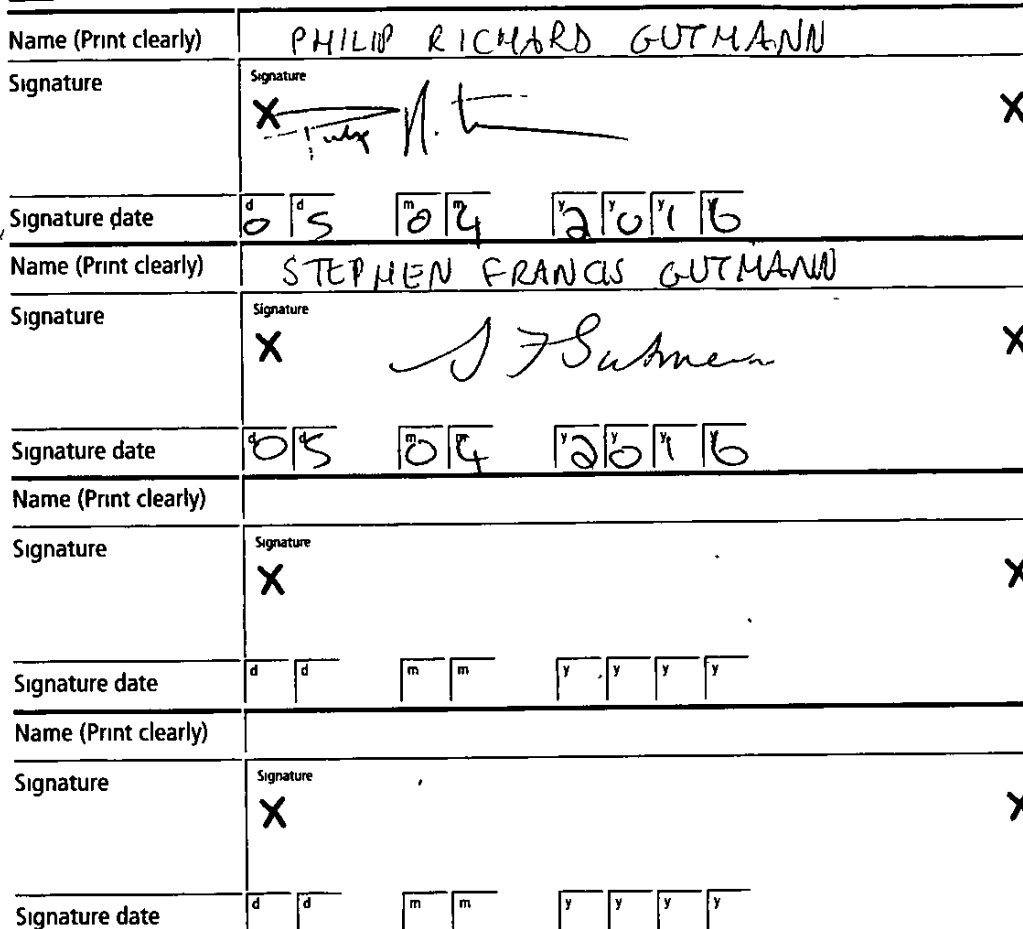 Name (Print clearly) PHILIP RICHARD GUTMANN
Signature Signature
X X
Signature date d d m m y y y y 05 04 2016
Name (Print clearly) STEPHEN FRANCIS GUTMANN
Signature Signature
X S F Gutmann X
Signature date d d m m y y y y 05 04 2016
Name (Print clearly)
Signature Signature
X X
Signature date d d m m y y y y
Name (Print clearly)
Signature Signature
X X
Signature date d d m m y y y y